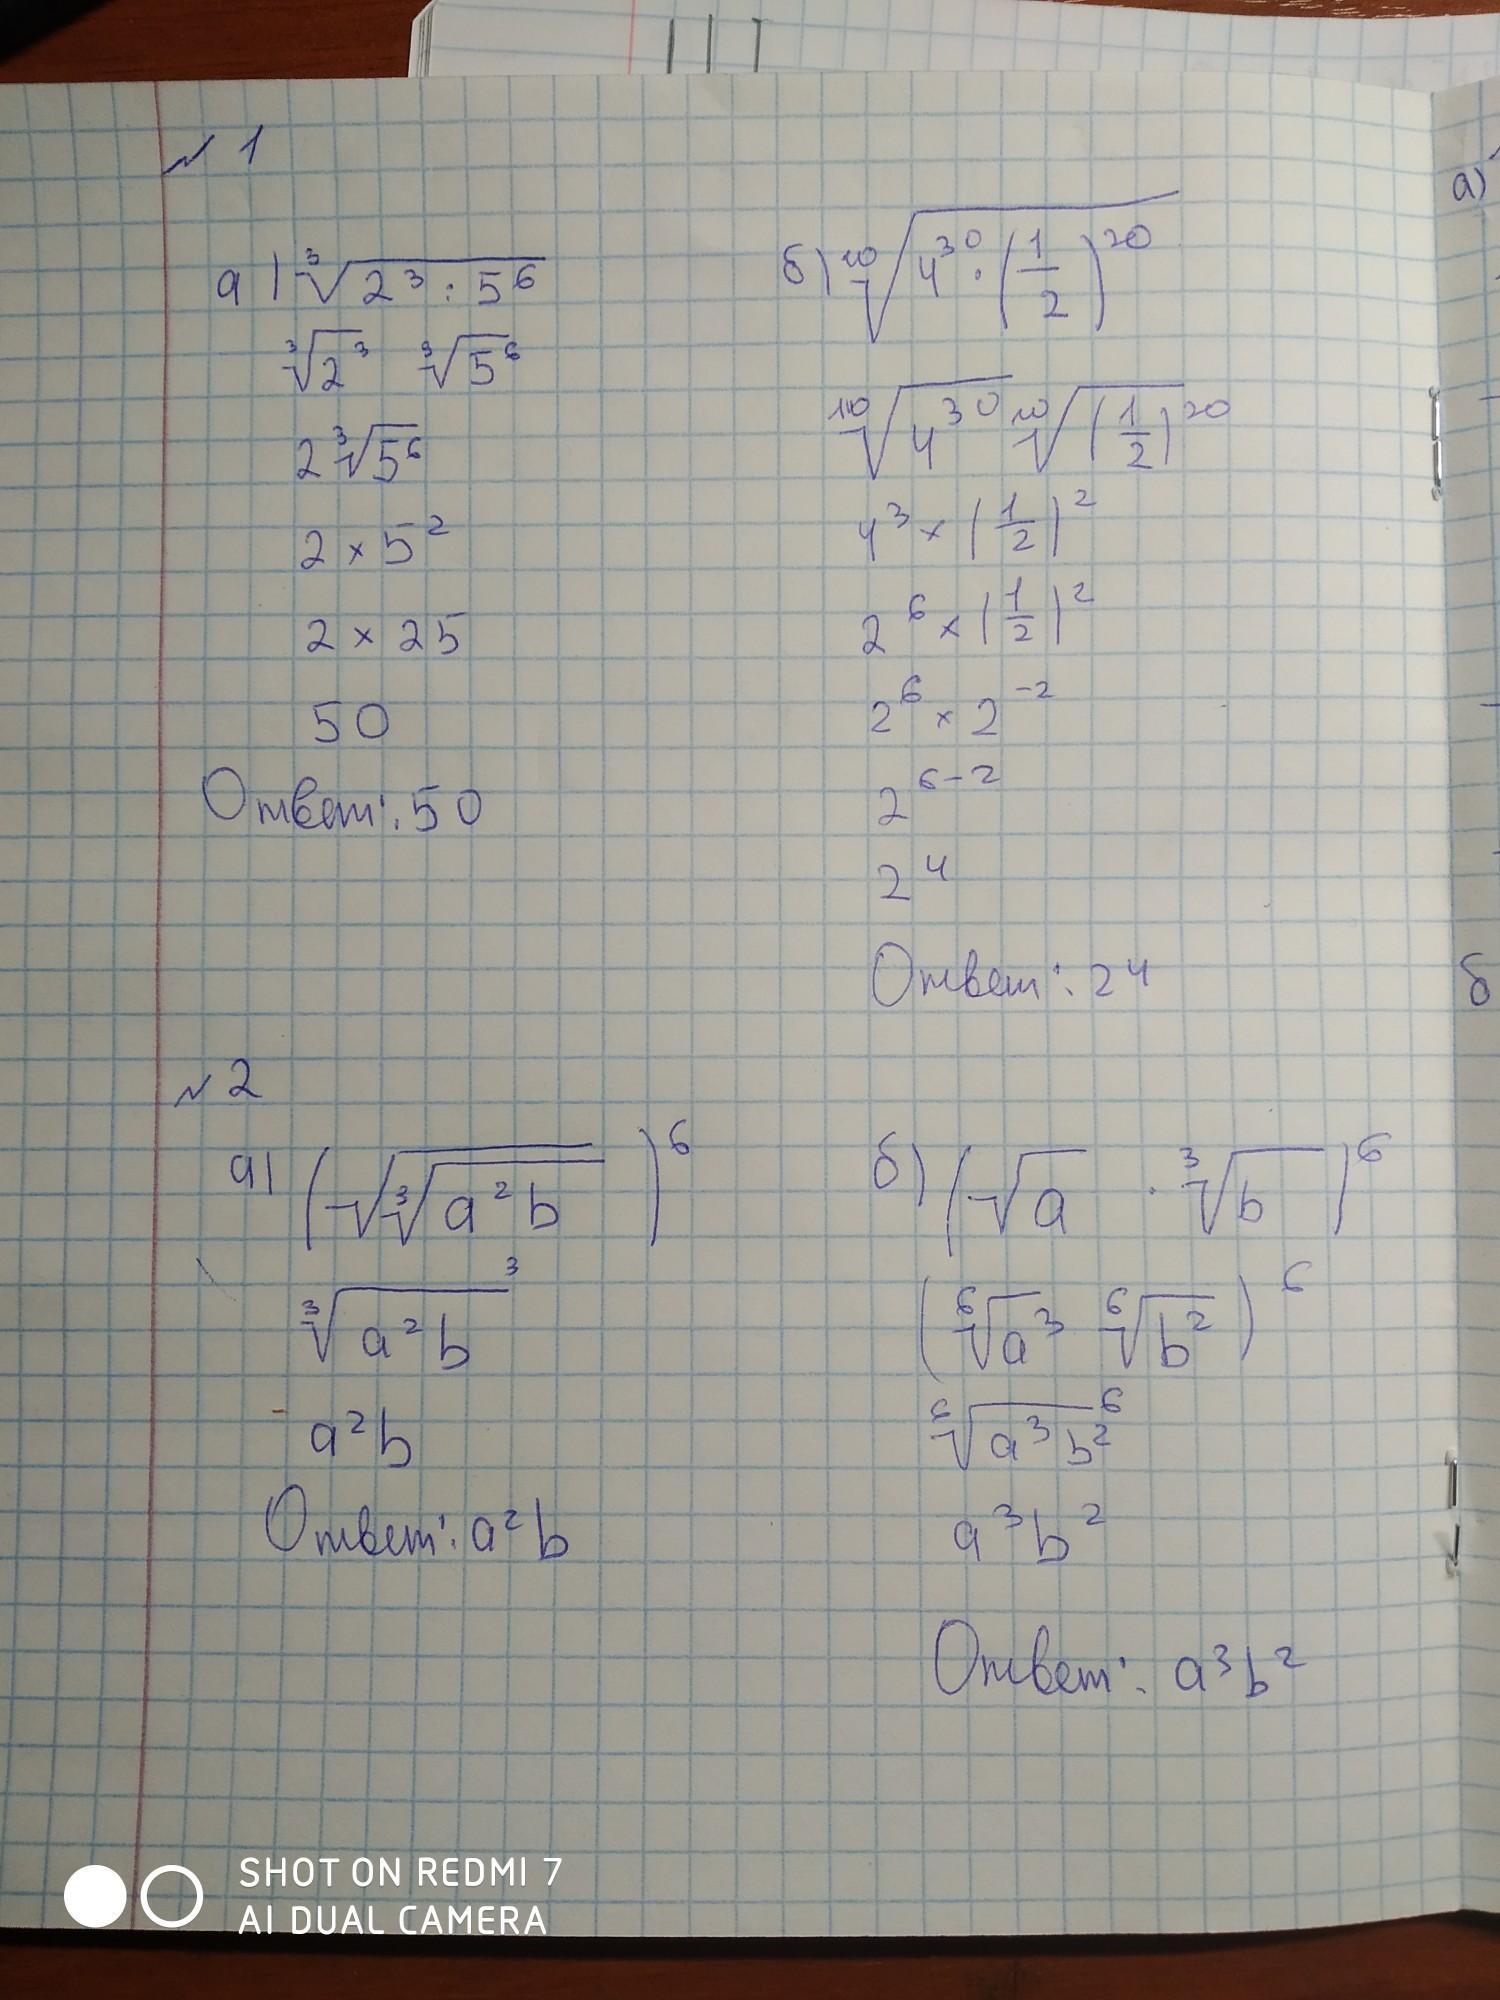 № 1
а) ∛(2³ : 5⁶)
∛2³ ∛5⁶
2∛5⁶
2 × 5²
2 × 25
50
Ответ: 50
б) ¹⁰√(4³⁰ · (1/2)²⁰)
¹⁰√4³⁰ ¹⁰√(1/2)²⁰
4³ × (1/2)²
2⁶ × (1/2)²
2⁶ × 2⁻²
2⁶⁻²
2⁴
Ответ: 2⁴
№ 2
а) (√∛(a²b))⁶
∛(a²b)³
a²b
Ответ: a²b
б) (√a · ∛b)⁶
(⁶√a³ ⁶√b²)⁶
⁶√(a³b²)⁶
a³b²
Ответ: a³b²
а)
б
SHOT ON REDMI 7
AI DUAL CAMERA